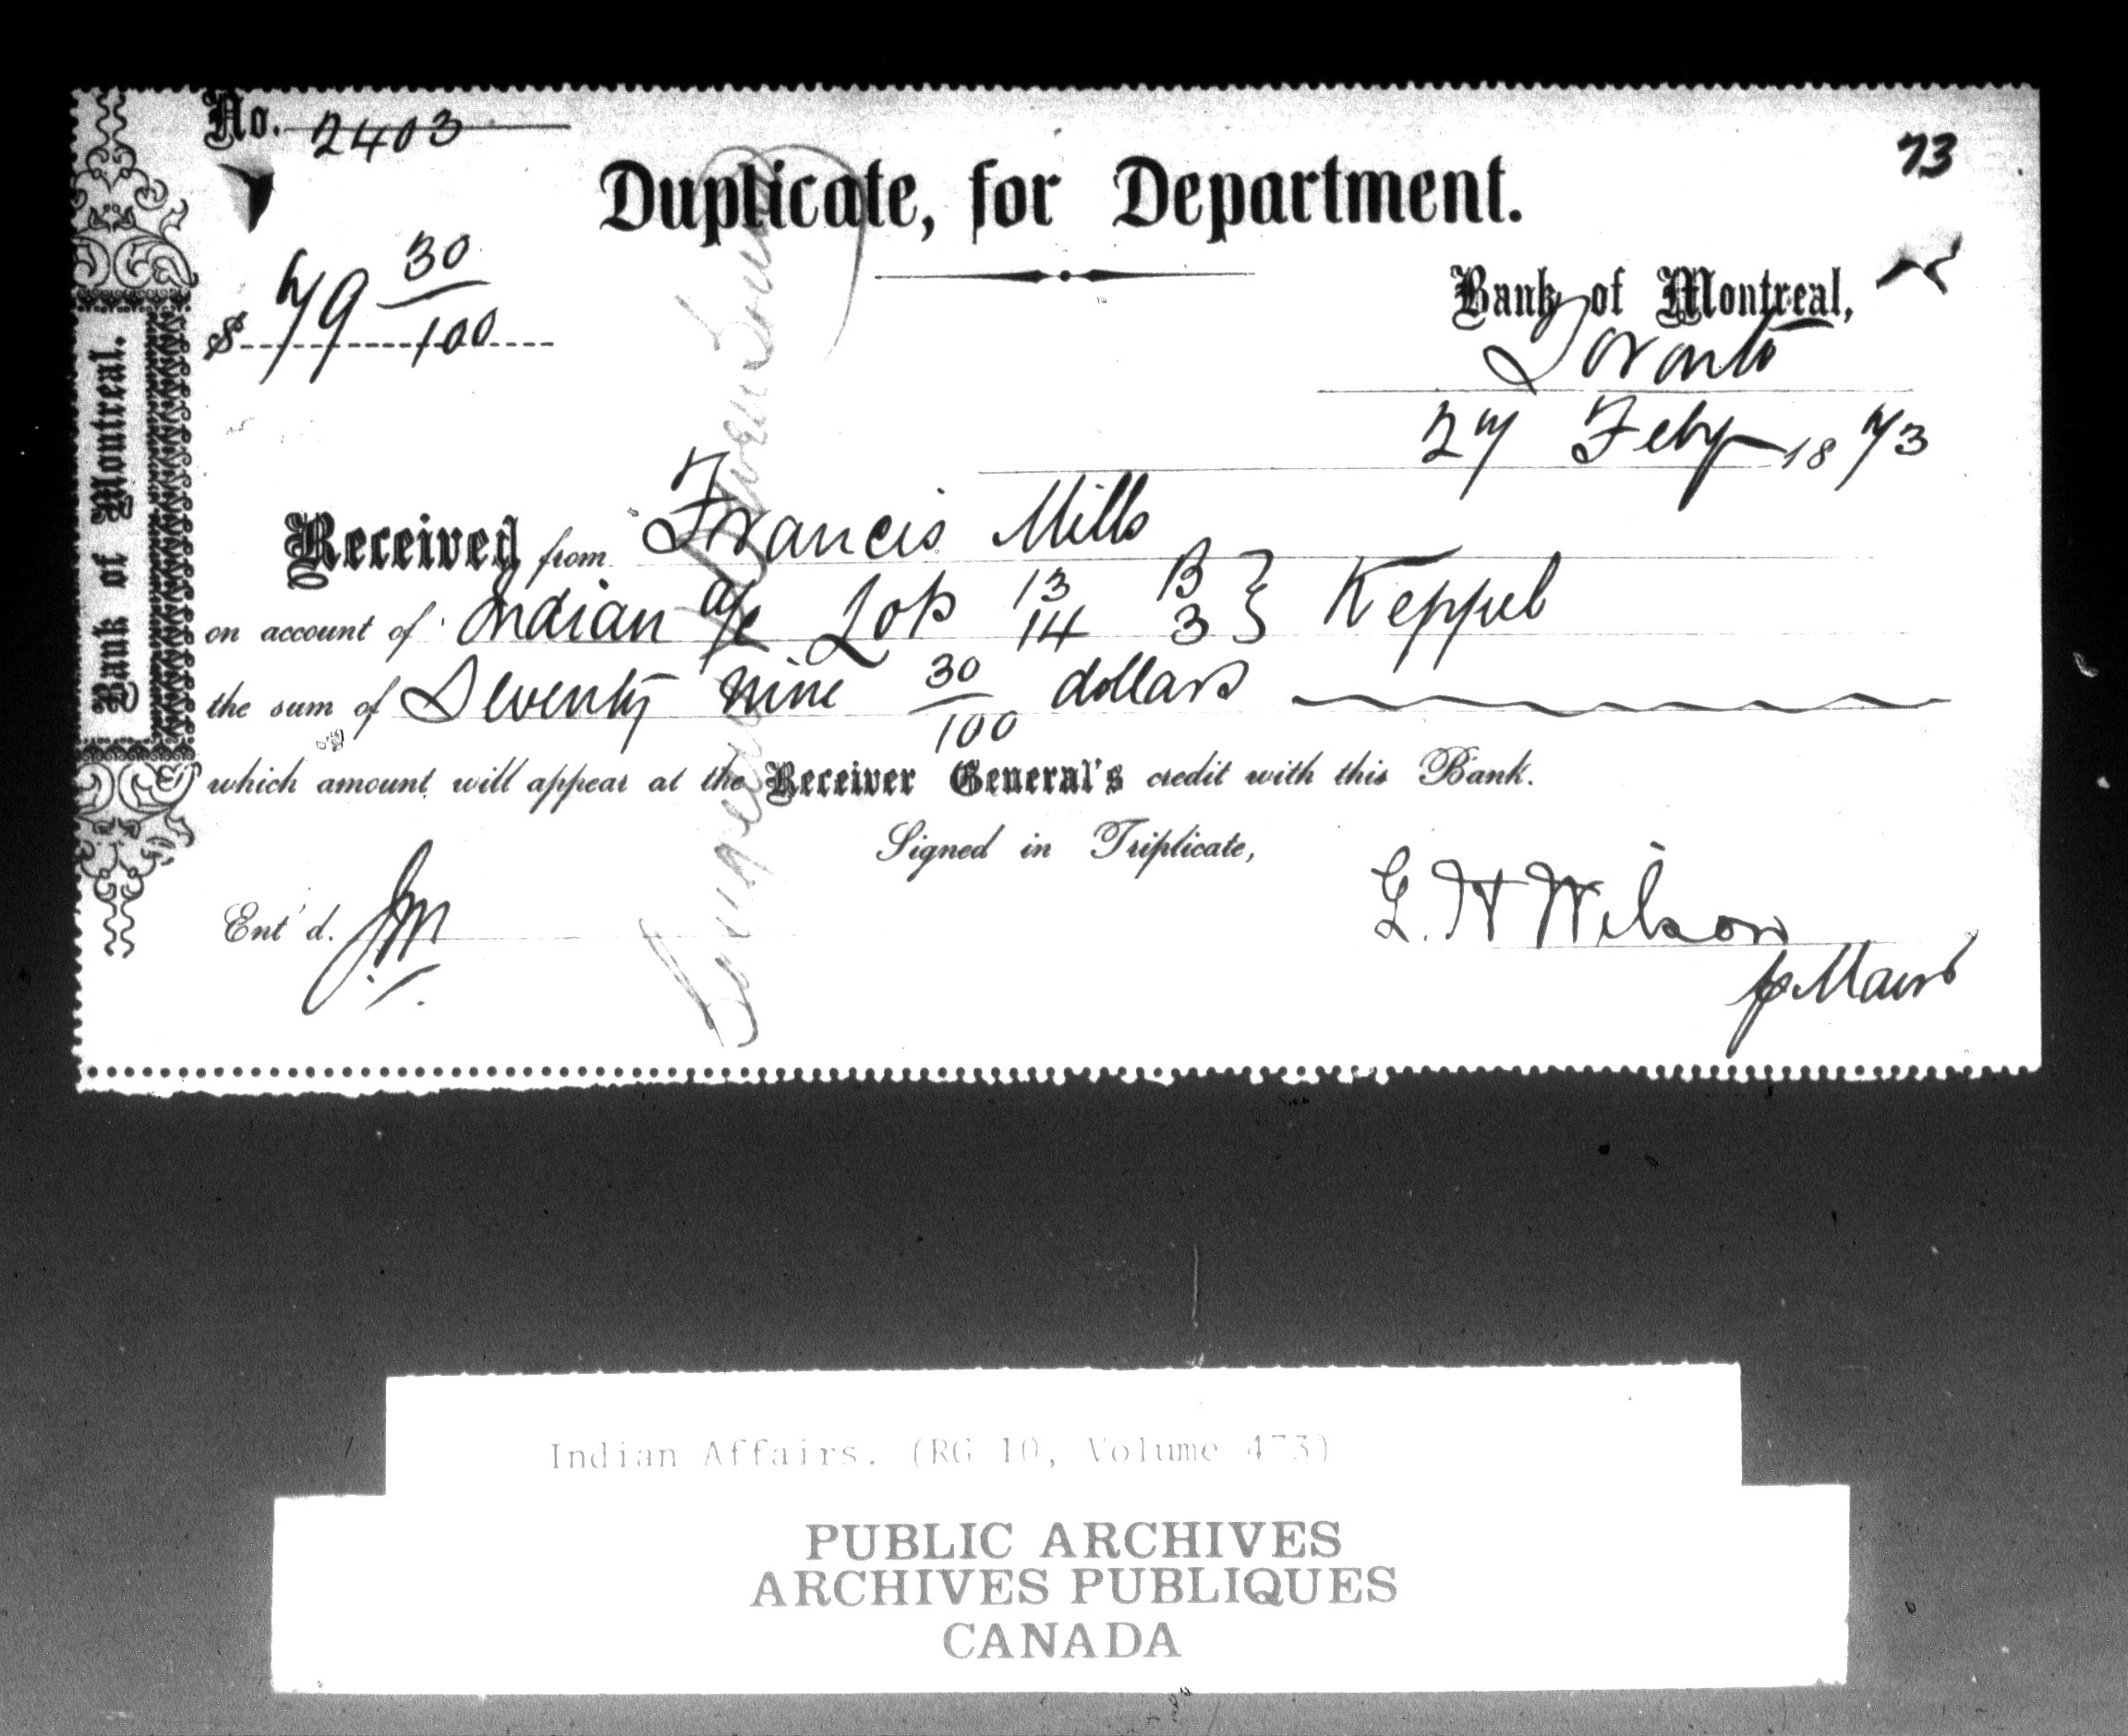 No. 2403
73
Duplicate, for Department.
$ 79 30/100
Bank of Montreal,
Toronto
27 Feby 1873
Received from Francis Mills
on account of Indian a/c Lots 13 14 B 3 } Keppel
the sum of Seventy nine 30/100 dollars
which amount will appear at the Receiver General's credit with this Bank.
Signed in Triplicate,
Ent'd. JM
G. H Wilson
p Manr
Bank of Montreal.
Owen Sound
Indian Affairs. (RG 10, Volume 473)
PUBLIC ARCHIVES
ARCHIVES PUBLIQUES
CANADA